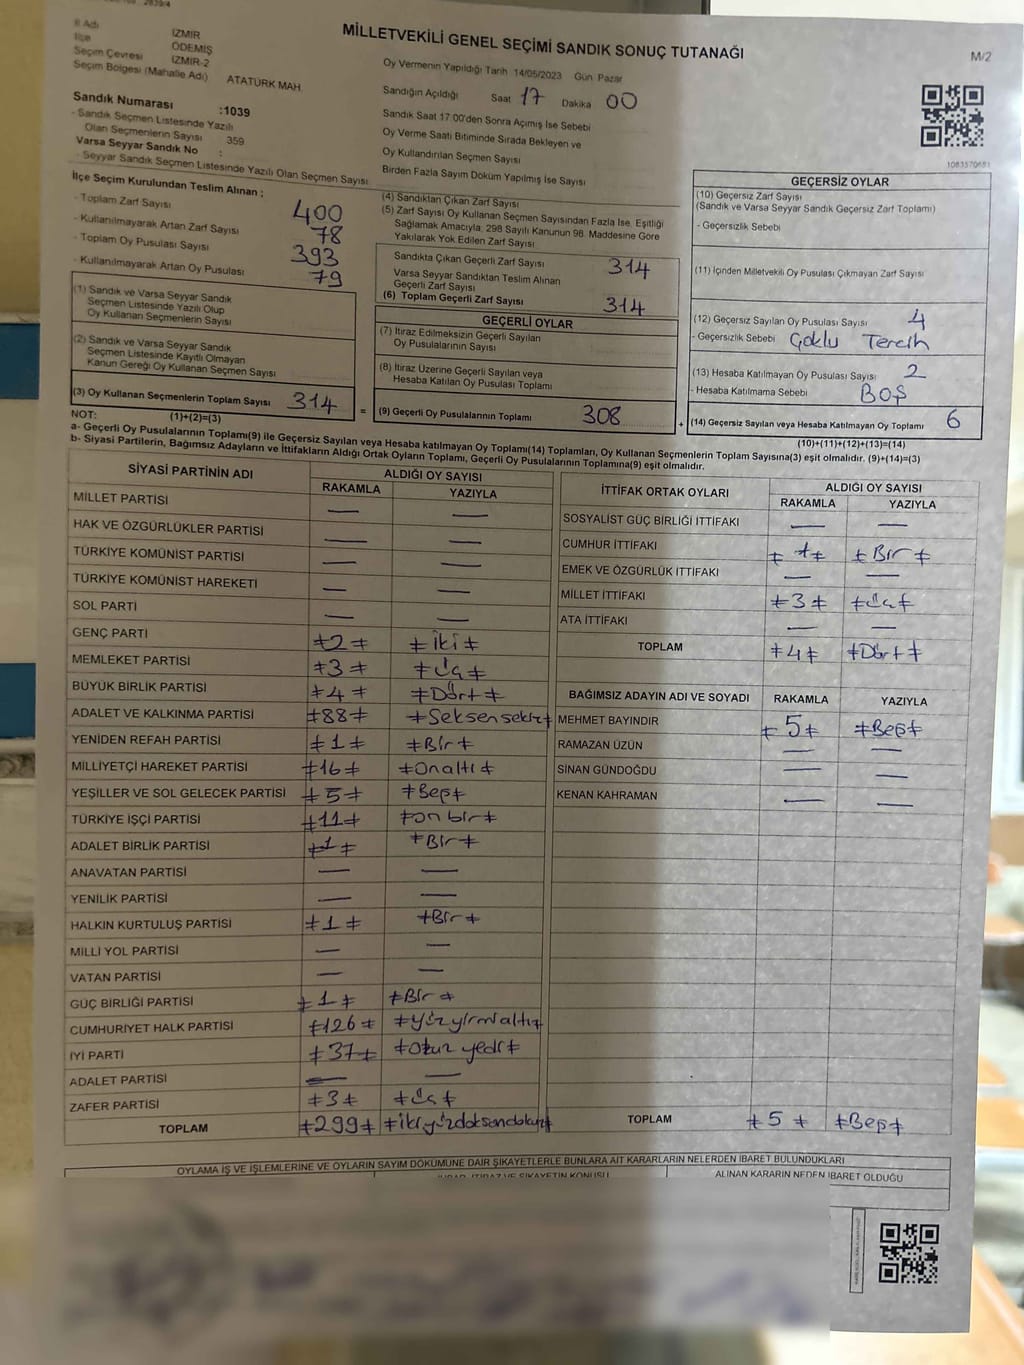 2839/4
İl Adı İZMİR
İlçe ÖDEMİŞ
Seçim Çevresi İZMİR-2
Seçim Bölgesi (Mahalle Adı) ATATÜRK MAH.
MİLLETVEKİLİ GENEL SEÇİMİ SANDIK SONUÇ TUTANAĞI
M/2
Sandık Numarası :1039
- Sandık Seçmen Listesinde Yazılı
Olan Seçmenlerin Sayısı 359
Varsa Seyyar Sandık No :
- Seyyar Sandık Seçmen Listesinde Yazılı Olan Seçmen Sayısı
Oy Vermenin Yapıldığı Tarih 14/05/2023 Gün Pazar
Sandığın Açıldığı Saat 17 Dakika 00
Sandık Saat 17:00'den Sonra Açımış İse Sebebi
Oy Verme Saati Bitiminde Sırada Bekleyen ve
Oy Kullandırılan Seçmen Sayısı
Birden Fazla Sayım Döküm Yapılmış İse Sayısı
1083570651
İlçe Seçim Kurulundan Teslim Alınan ;
- Toplam Zarf Sayısı 400
- Kullanılmayarak Artan Zarf Sayısı 78
- Toplam Oy Pusulası Sayısı 393
- Kullanılmayarak Artan Oy Pusulası 79
(1) Sandık ve Varsa Seyyar Sandık
Seçmen Listesinde Yazılı Olup
Oy Kullanan Seçmenlerin Sayısı
(2) Sandık ve Varsa Seyyar Sandık
Seçmen Listesinde Kayıtlı Olmayan
Kanun Gereği Oy Kullanan Seçmen Sayısı
(3) Oy Kullanan Seçmenlerin Toplam Sayısı 314 =
(1)+(2)=(3)
(4) Sandıktan Çıkan Zarf Sayısı
(5) Zarf Sayısı Oy Kullanan Seçmen Sayısından Fazla İse, Eşitliği
Sağlamak Amacıyla, 298 Sayılı Kanunun 98. Maddesine Göre
Yakılarak Yok Edilen Zarf Sayısı
Sandıkta Çıkan Geçerli Zarf Sayısı 314
Varsa Seyyar Sandıktan Teslim Alınan
Geçerli Zarf Sayısı
(6) Toplam Geçerli Zarf Sayısı 314
GEÇERLİ OYLAR
(7) İtiraz Edilmeksizin Geçerli Sayılan
Oy Pusulalarının Sayısı
(8) İtiraz Üzerine Geçerli Sayılan veya
Hesaba Katılan Oy Pusulası Toplamı
(9) Geçerli Oy Pusulalarının Toplamı 308 +
GEÇERSİZ OYLAR
(10) Geçersiz Zarf Sayısı
(Sandık ve Varsa Seyyar Sandık Geçersiz Zarf Toplamı)
- Geçersizlik Sebebi
(11) İçinden Milletvekili Oy Pusulası Çıkmayan Zarf Sayısı
(12) Geçersiz Sayılan Oy Pusulası Sayısı 4
- Geçersizlik Sebebi Çoklu Tercih
(13) Hesaba Katılmayan Oy Pusulası Sayısı 2
- Hesaba Katılmama Sebebi BOŞ
(14) Geçersiz Sayılan veya Hesaba Katılmayan Oy Toplamı 6
(10)+(11)+(12)+(13)=(14)
NOT:
a- Geçerli Oy Pusulalarının Toplamı(9) ile Geçersiz Sayılan veya Hesaba katılmayan Oy Toplamı(14) Toplamları, Oy Kullanan Seçmenlerin Toplam Sayısına(3) eşit olmalıdır. (9)+(14)=(3)
b- Siyasi Partilerin, Bağımsız Adayların ve İttifakların Aldığı Ortak Oyların Toplamı, Geçerli Oy Pusulalarının Toplamına(9) eşit olmalıdır.
SİYASİ PARTİNİN ADI ALDIĞI OY SAYISI
RAKAMLA YAZIYLA
MİLLET PARTİSİ — —
HAK VE ÖZGÜRLÜKLER PARTİSİ — —
TÜRKİYE KOMÜNİST PARTİSİ — —
TÜRKİYE KOMÜNİST HAREKETİ — —
SOL PARTİ — —
GENÇ PARTİ ≠2≠ ≠İki≠
MEMLEKET PARTİSİ ≠3≠ ≠Üç≠
BÜYÜK BİRLİK PARTİSİ ≠4≠ ≠Dört≠
ADALET VE KALKINMA PARTİSİ ≠88≠ ≠Seksensekiz≠
YENİDEN REFAH PARTİSİ ≠1≠ ≠Bir≠
MİLLİYETÇİ HAREKET PARTİSİ ≠16≠ ≠Onaltı≠
YEŞİLLER VE SOL GELECEK PARTİSİ ≠5≠ ≠Beş≠
TÜRKİYE İŞÇİ PARTİSİ ≠11≠ ≠on bir≠
ADALET BİRLİK PARTİSİ ≠1≠ ≠Bir≠
ANAVATAN PARTİSİ — —
YENİLİK PARTİSİ — —
HALKIN KURTULUŞ PARTİSİ ≠1≠ ≠Bir≠
MİLLİ YOL PARTİSİ — —
VATAN PARTİSİ — —
GÜÇ BİRLİĞİ PARTİSİ ≠1≠ ≠Bir≠
CUMHURİYET HALK PARTİSİ ≠126≠ ≠yüzyirmialtı≠
İYİ PARTİ ≠37≠ ≠otuz yedi≠
ADALET PARTİSİ — —
ZAFER PARTİSİ ≠3≠ ≠üç≠
TOPLAM ≠299≠ ≠ikiyüzdoksandokuz≠
İTTİFAK ORTAK OYLARI ALDIĞI OY SAYISI
RAKAMLA YAZIYLA
SOSYALİST GÜÇ BİRLİĞİ İTTİFAKI — —
CUMHUR İTTİFAKI ≠1≠ ≠Bir≠
EMEK VE ÖZGÜRLÜK İTTİFAKI — —
MİLLET İTTİFAKI ≠3≠ ≠üç≠
ATA İTTİFAKI — —
TOPLAM ≠4≠ ≠Dört≠
BAĞIMSIZ ADAYIN ADI VE SOYADI RAKAMLA YAZIYLA
MEHMET BAYINDIR ≠5≠ ≠Beş≠
RAMAZAN ÜZÜN — —
SİNAN GÜNDOĞDU — —
KENAN KAHRAMAN — —
TOPLAM ≠5≠ ≠Beş≠
OYLAMA İŞ VE İŞLEMLERİNE VE OYLARIN SAYIM DÖKÜMÜNE DAİR ŞİKAYETLERLE BUNLARA AİT KARARLARIN NELERDEN İBARET BULUNDUKLARI
ALINAN KARARIN NEDEN İBARET OLDUĞU